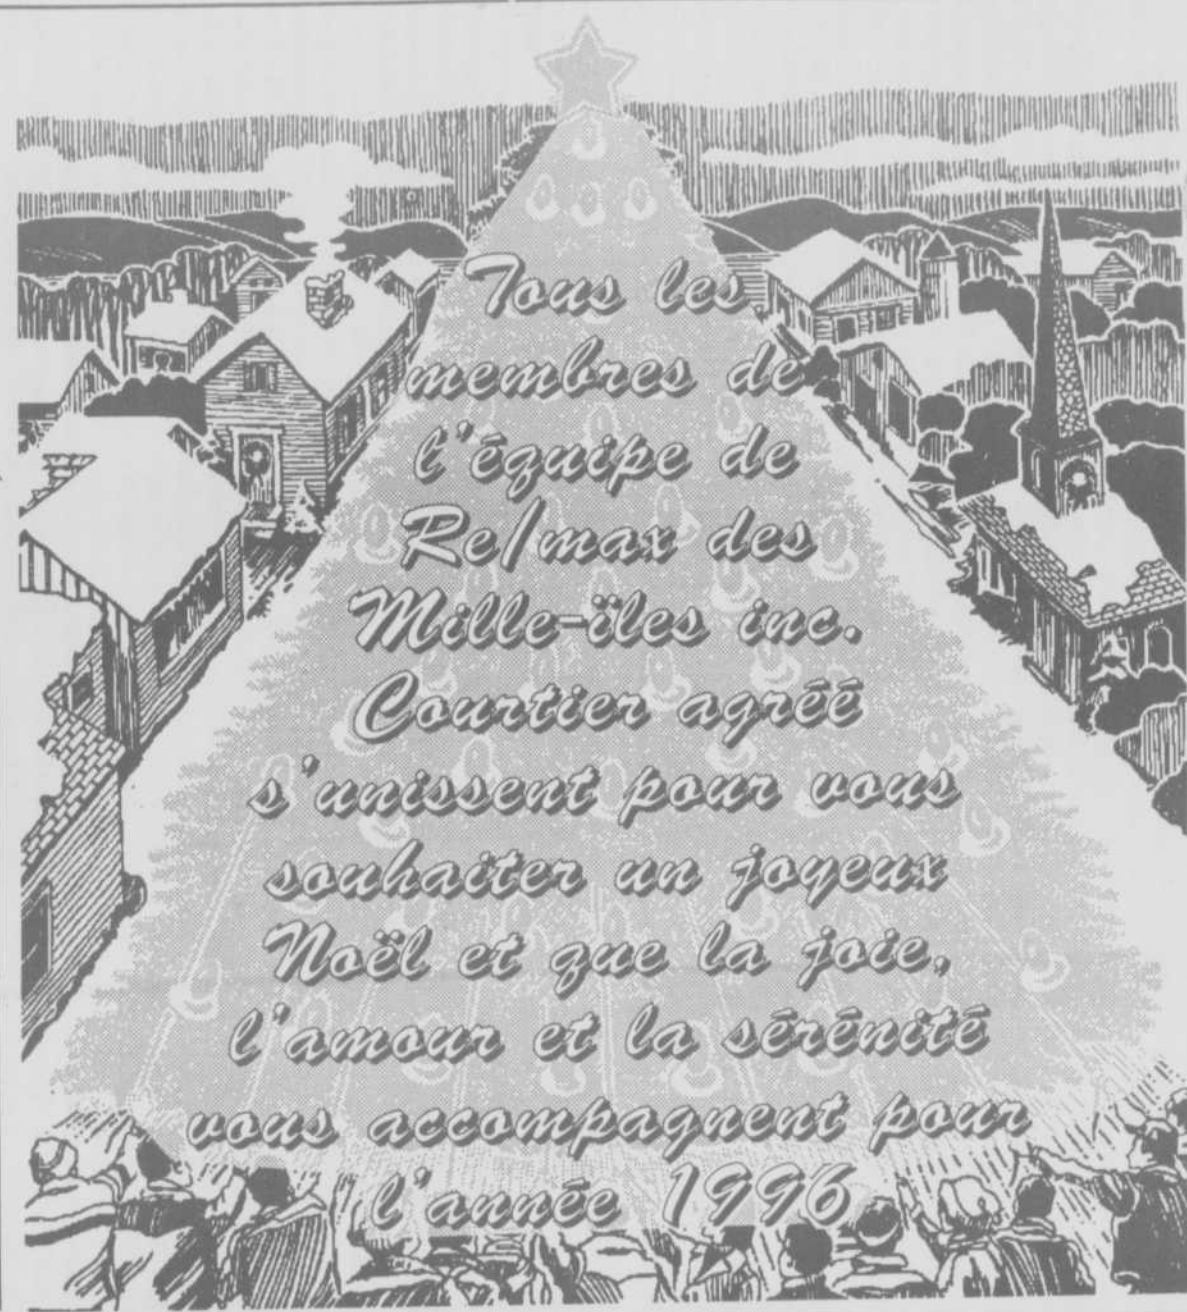 Tous les
membres de
l'équipe de
Re/max des
Mille-ïles inc.
Courtier agréé
s'unissent pour vous
souhaiter un joyeux
Noël et que la joie,
l'amour et la sérénité
vous accompagnent pour
l'année 1996